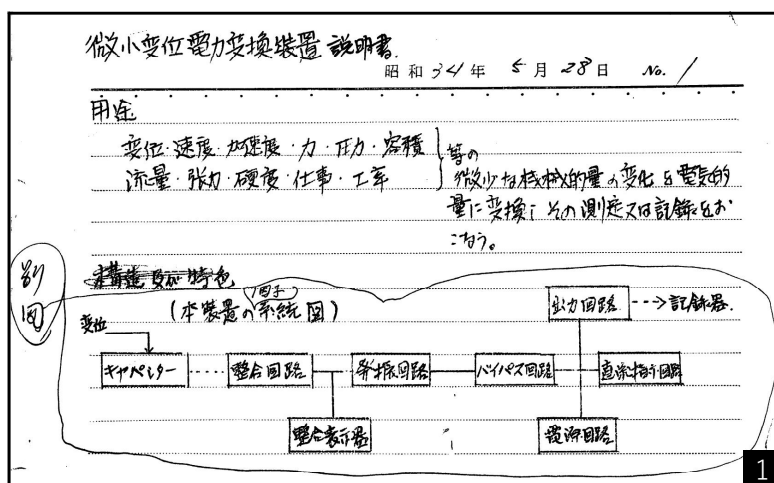 微小変位電力変換装置 説明書
昭和34年 5月28日 No. 1
用途
変位・速度・加速度・力・圧力・容積
流量・張力・硬度・仕事・工率
等の
微少な機械的量の変化を電気的
量に変換し その測定又は記録をお
こなう。
別図
構造及び特色
(本装置の系統図)
変位
出力回路 ---> 記録器
キャパシター 整合回路 発振回路 バイパス回路 直流指示回路
整合表示器 電源回路
1